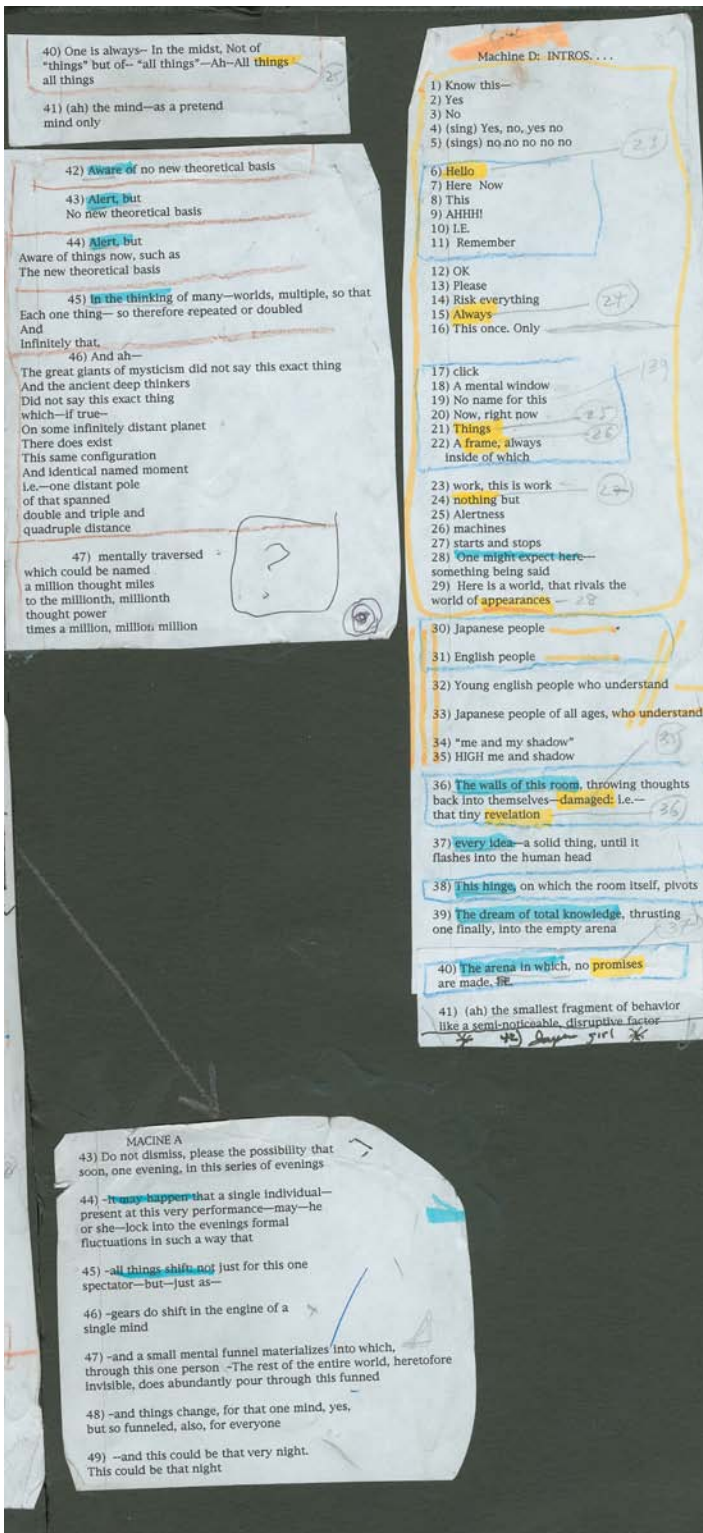 40) One is always-- In the midst, Not of
"things" but of-- "all things"—Ah--All things
all things
41) (ah) the mind—as a pretend
mind only
42) Aware of no new theoretical basis
43) Alert, but
No new theoretical basis
44) Alert, but
Aware of things now, such as
The new theoretical basis
45) In the thinking of many—worlds, multiple, so that
Each one thing— so therefore repeated or doubled
And
Infinitely that,
46) And ah—
The great giants of mysticism did not say this exact thing
And the ancient deep thinkers
Did not say this exact thing
which—if true--
On some infinitely distant planet
There does exist
This same configuration
And identical named moment
i.e.—one distant pole
of that spanned
double and triple and
quadruple distance
47) mentally traversed
which could be named
a million thought miles
to the millionth, millionth
thought power
times a million, million million
?
Machine D: INTROS. . . .
1) Know this—
2) Yes
3) No
4) (sing) Yes, no, yes no
5) (sings) no no no no no
23
6) Hello
7) Here Now
8) This
9) AHHH!
10) I.E.
11) Remember
12) OK
13) Please
14) Risk everything
24
15) Always
16) This once. Only
17) click
139
18) A mental window
19) No name for this
20) Now, right now
25
21) Things
26
22) A frame, always
inside of which
23) work, this is work
27
24) nothing but
25) Alertness
26) machines
27) starts and stops
28) One might expect here—
something being said
29) Here is a world, that rivals the
world of appearances
28
30) Japanese people
31) English people
32) Young english people who understand
33) Japanese people of all ages, who understand
34) "me and my shadow"
35
35) HIGH me and shadow
36) The walls of this room, throwing thoughts
back into themselves—damaged: i.e.—
that tiny revelation
36
37) every idea—a solid thing, until it
flashes into the human head
38) This hinge, on which the room itself, pivots
39) The dream of total knowledge, thrusting
one finally, into the empty arena
37
40) The arena in which, no promises
are made,
41) (ah) the smallest fragment of behavior
like a semi-noticeable, disruptive factor
42) girl
MACINE A
43) Do not dismiss, please the possibility that
soon, one evening, in this series of evenings
44) -it may happen that a single individual—
present at this very performance—may—he
or she—lock into the evenings formal
fluctuations in such a way that
45) -all things shift not just for this one
spectator—but—just as—
46) -gears do shift in the engine of a
single mind
47) -and a small mental funnel materializes into which,
through this one person -The rest of the entire world, heretofore
invisible, does abundantly pour through this funned
48) -and things change, for that one mind, yes,
but so funneled, also, for everyone
49) --and this could be that very night.
This could be that night